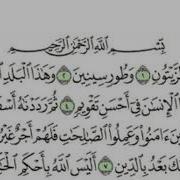 بِسْمِ اللَّهِ الرَّحْمَٰنِ الرَّحِيمِ
لزَّيْتُونِ ١ وَطُورِ سِينِينَ ٢ وَهَٰذَا الْبَلَدِ
الْإِنسَٰنَ فِي أَحْسَنِ تَقْوِيمٍ ٤ ثُمَّ رَدَدْنَٰهُ أَسْفَ
ينَ ءَامَنُوا وَعَمِلُوا الصَّٰلِحَٰتِ فَلَهُمْ أَجْرٌ غَيْرُ
بُكَ بَعْدُ بِالدِّينِ ٧ أَلَيْسَ اللَّهُ بِأَحْكَمِ الْحَ